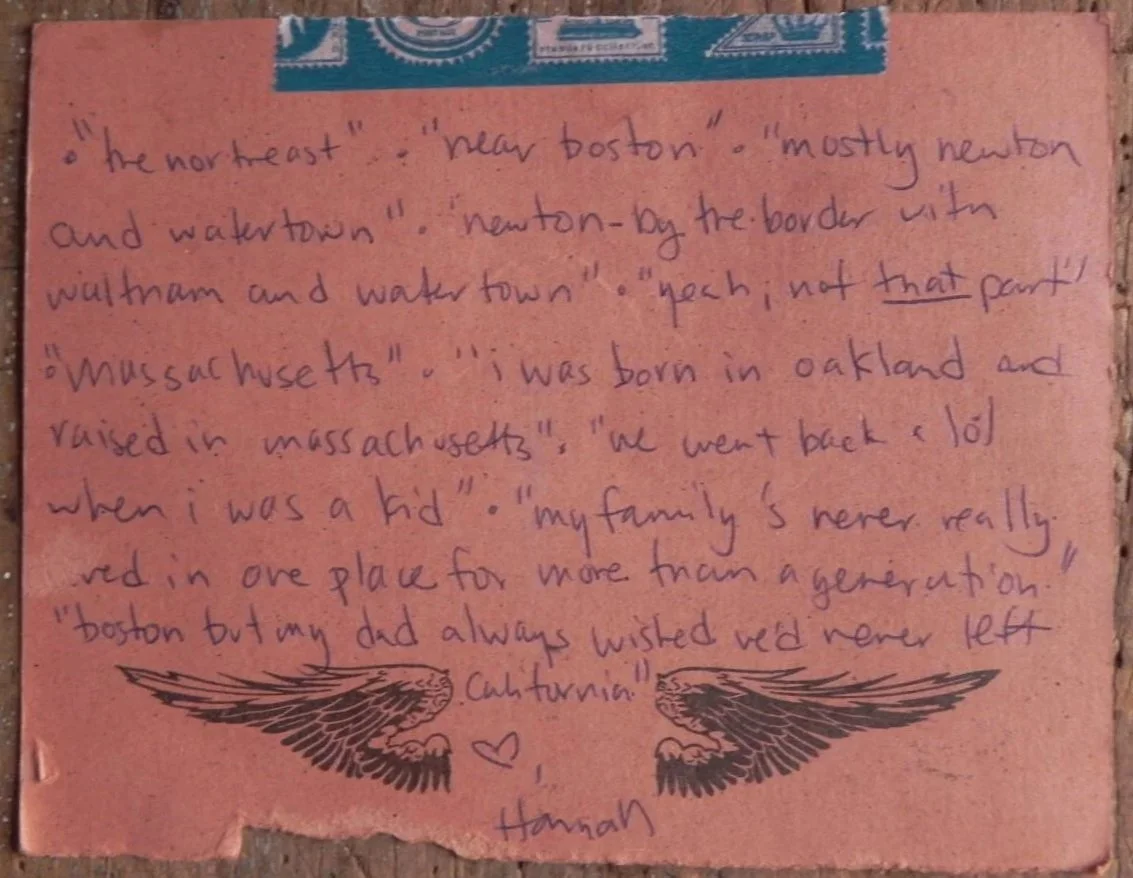 • "the northeast" • "near boston" • "mostly newton
and watertown" • "newton-by the border with
waltham and watertown" • "yeah, not that part"
• "massachusetts" • "i was born in oakland and
raised in massachusetts" • "we went back a lot
when i was a kid" • "my family's never really
ved in one place for more than a generation."
"boston but my dad always wished we'd never left
California"
♡,
Hannah